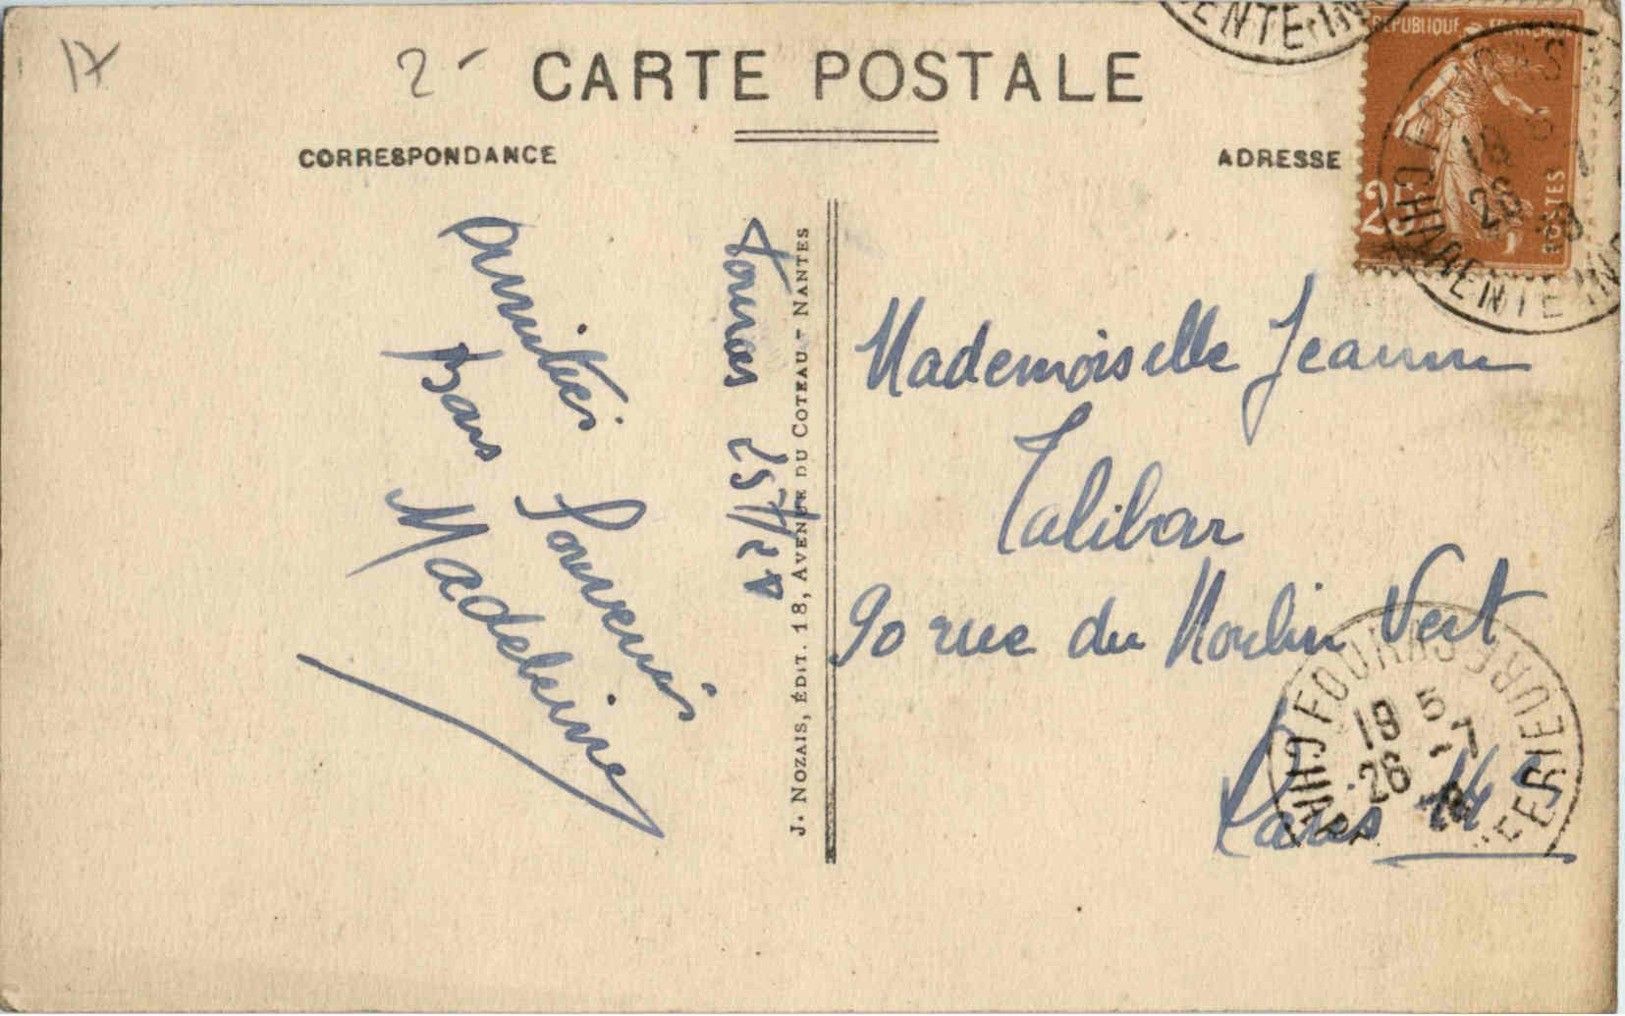 17
2-
CARTE POSTALE
CORRESPONDANCE
ADRESSE
RÉPUBLIQUE FRANÇAISE
25c
POSTES
CHARENTE INF
Fouras
Amitiés
Bons Souvenirs
Madeleine
J. NOZAIS, ÉDIT. 18, AVENUE DU COTEAU - NANTES
Mademoiselle Jeanne
Talibar
90 rue du Moulin Vert
Paris 14
FOURAS
CHARENTE INFERIEURE
19
5-7
28